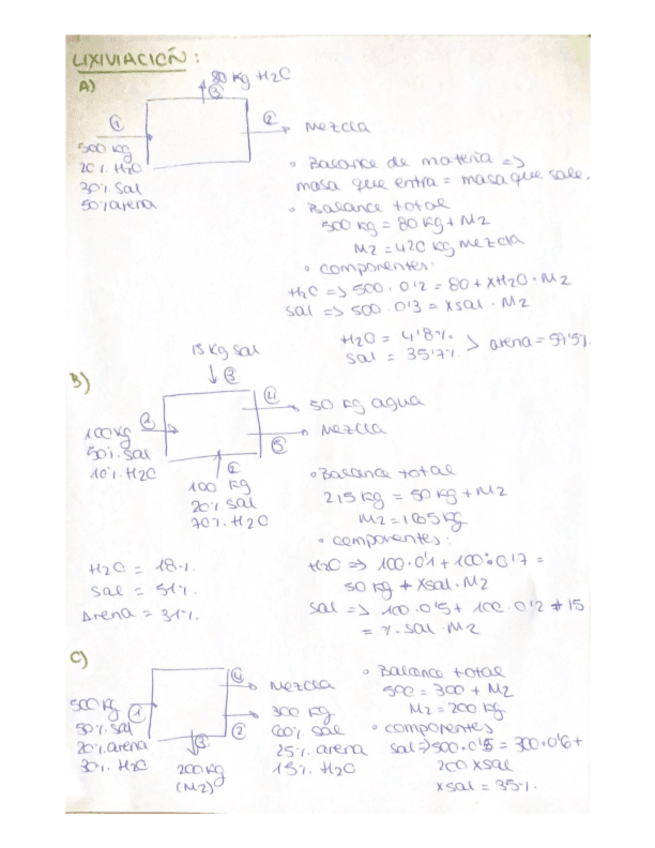 LIXIVIACIÓN:
A)
80 kg H2O
③
①
② Mezcla
500 kg
20% H2O
30% Sal
50% arena
• Balance de materia =>
masa que entra = masa que sale.
• Balance total
500 kg = 80 kg + M2
M2 = 420 kg mezcla
• componentes:
H2O => 500 · 0'2 = 80 + XH2O · M2
sal => 500 · 0'3 = Xsal · M2
H2O = 4'8%
sal = 35'7% > arena = 59'5%
B)
15 kg sal
↓ ③
④ 50 kg agua
⑤ Mezcla
100 kg
50% sal
10% H2O
②
100 kg
20% sal
70% H2O
• Balance total
215 kg = 50 kg + M2
M2 = 165 kg
• componentes:
H2O => 100 · 0'1 + 100 · 0'7 =
50 kg + Xsal · M2
sal => 100 · 0'5 + 100 · 0'2 + 15
= % sal · M2
H2O = 18%
Sal = 51%
Arena = 31%
C)
④ Mezcla
500 kg ①
50% sal
20% arena
30% H2O
③
200 kg
(M2)
300 kg
② 60% sal
25% arena
15% H2O
• Balance total
500 = 300 + M2
M2 = 200 kg
• componentes
sal => 500 · 0'5 = 300 · 0'6 +
200 Xsal
Xsal = 35%